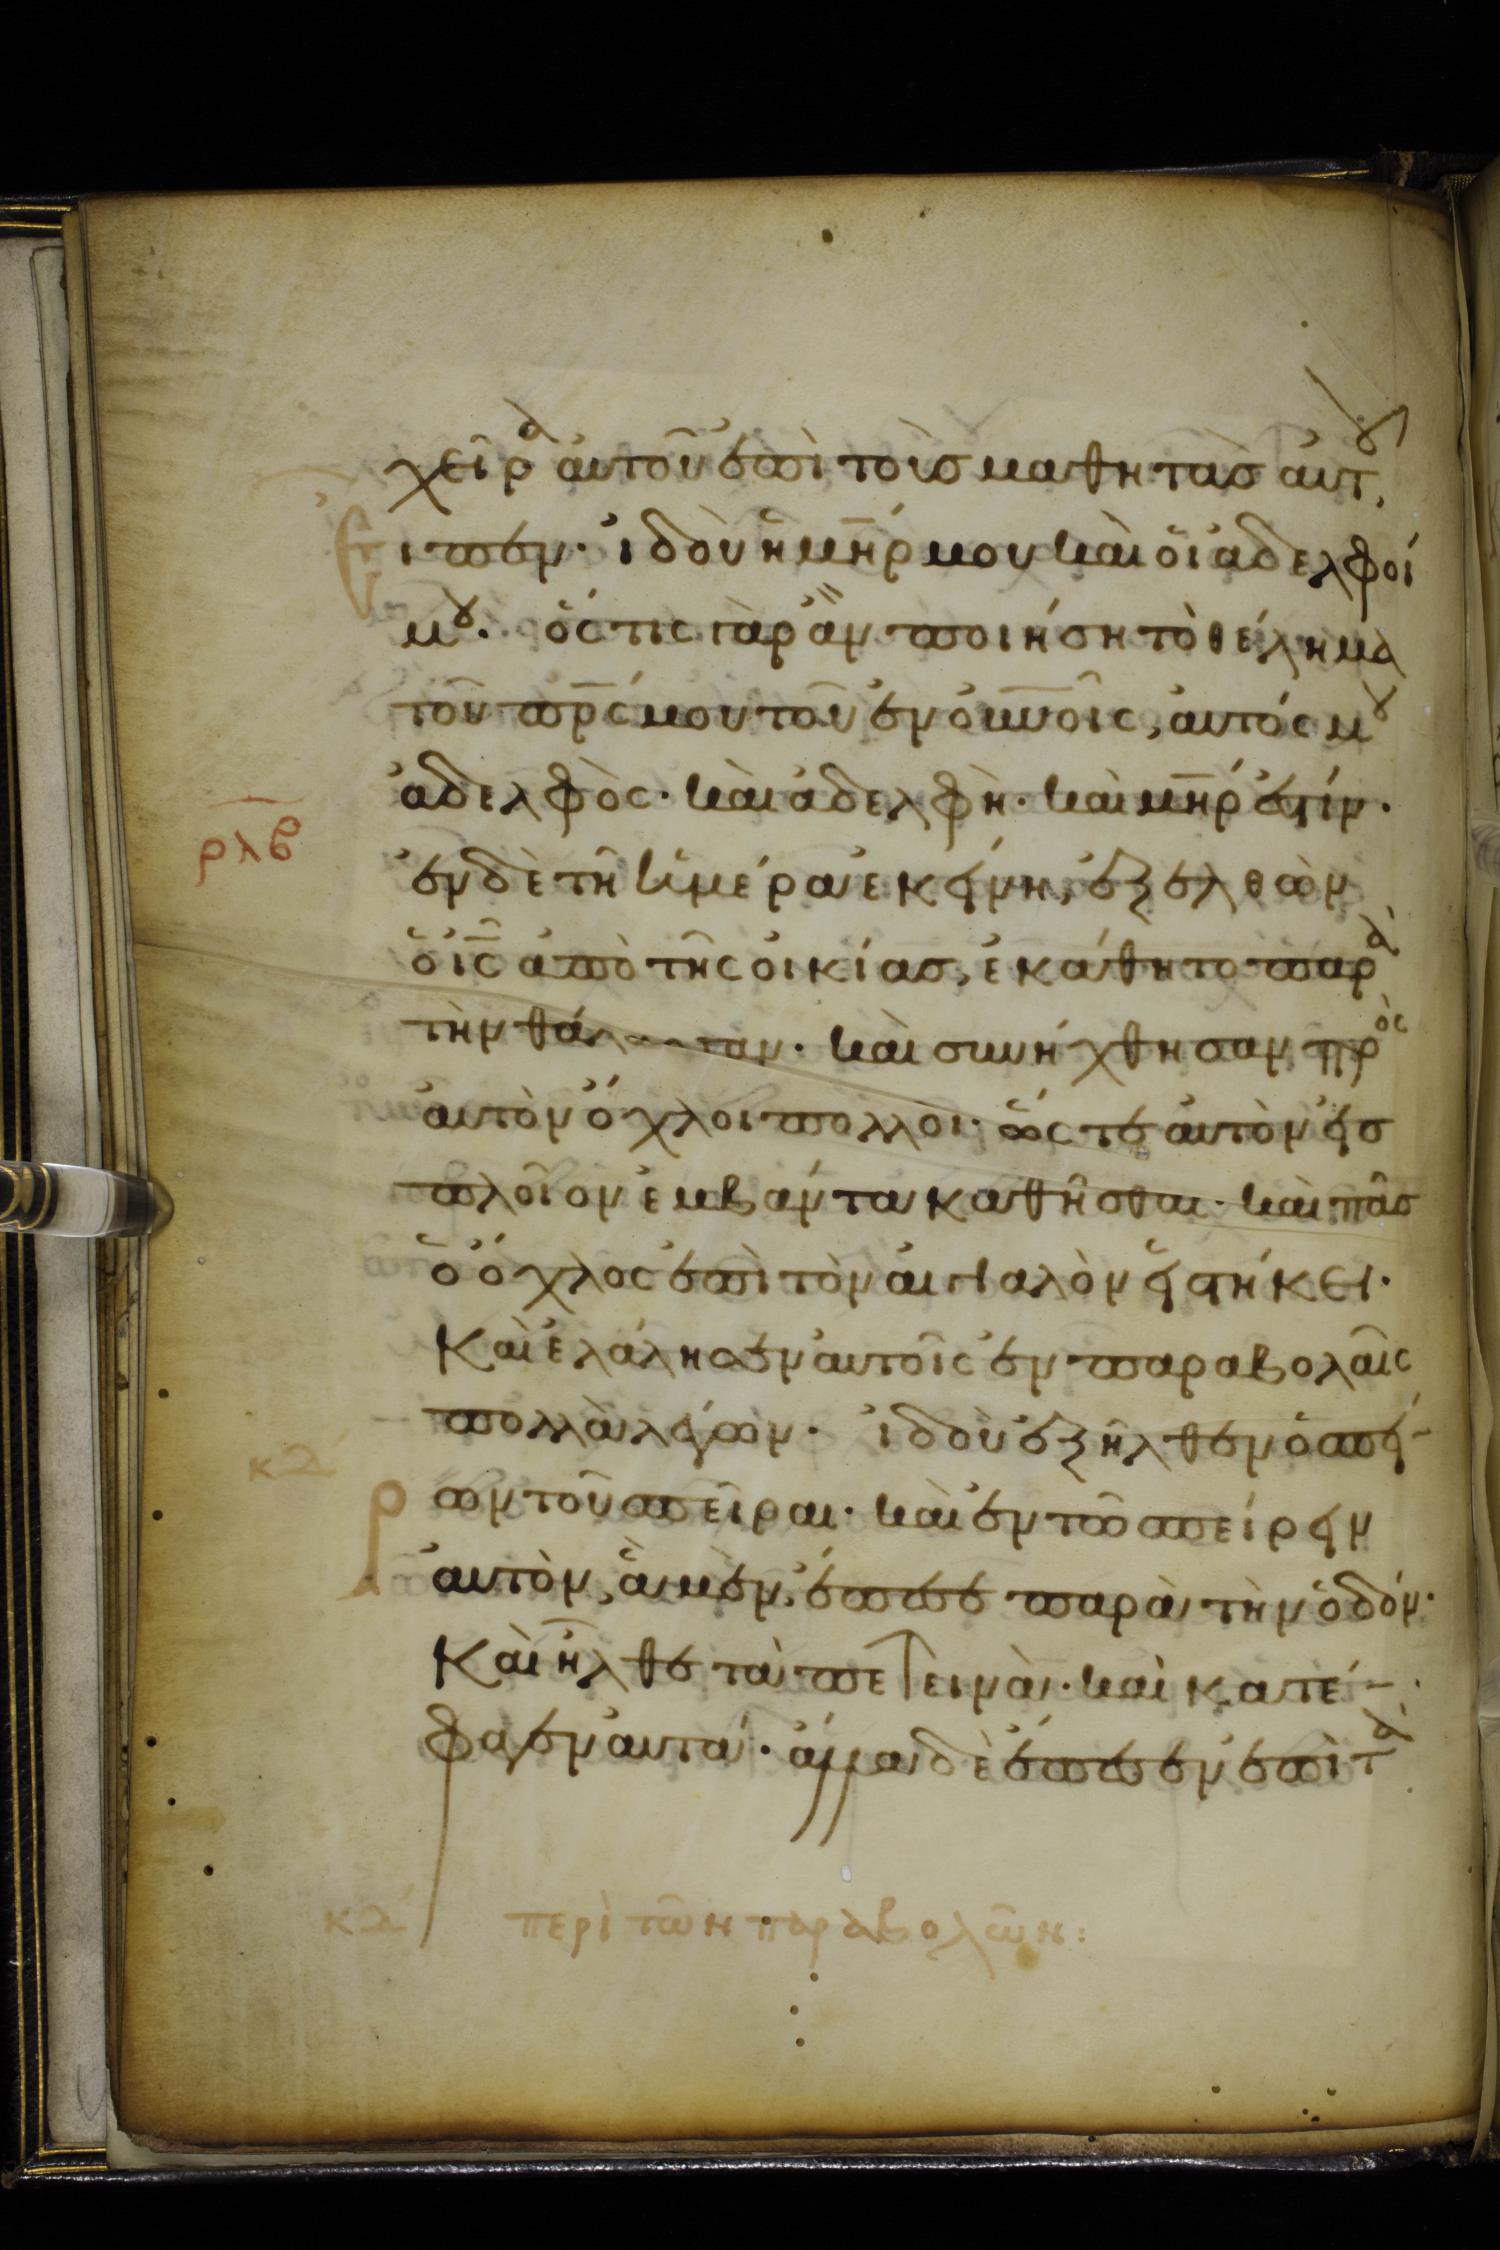 χεῖρα αὐτοῦ ἐπὶ τοὺς μαθητὰς αὐτοῦ
εἶπεν· ἰδοὺ ἡ μῆρ μου καὶ οἱ ἀδελφοί
μου. ὅστις γὰρ ἂν ποιήση τὸ θέλημα
τοῦ πρς μου τοῦ ἐν οὐνοῖς, αὐτός μου
ἀδελφὸς· καὶ ἀδελφὴ· καὶ μηρ ἐστίν·
ρλβ
ἐν δὲ τῆ ἡμέρα ἐκείνη, ἐξελθὼν
ὁ ις ἀπὸ τῆς οἰκίας, ἐκάθητο παρὰ
τὴν θάλασσαν· καὶ συνήχθησαν πρὸς
αὐτὸν ὄχλοι πολλοὶ· ὥστε αὐτὸν εἰς
πλοῖον ἐμβάντα καθῆσθαι· καὶ πᾶς
ὁ ὄχλος ἐπὶ τὸν αἰγιαλὸν εἱστήκει·
Καὶ ἐλάλησεν αὐτοῖς ἐν παραβολαῖς
πολλὰ λέγων· ἰδοὺ ἐξῆλθεν ὁ σπεί-
κδ
ρων τοῦ σπεῖραι· καὶ ἐν τῶ σπείρειν
αὐτὸν, ἃ μὲν, ἔπεσε παρὰ τὴν ὁδόν·
Καὶ ἦλθε τὰ πετεινὰ· καὶ κατέ-
φαγεν αὐτά· ἄλλα δὲ ἔπεσεν ἐπὶ τὰ
κδ περὶ τῶν παραβολῶν: